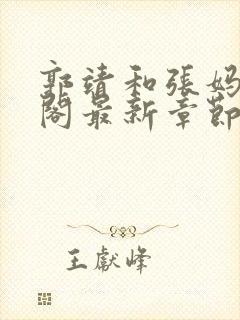 郭靖和張媽
閣最新章節
王獻峰